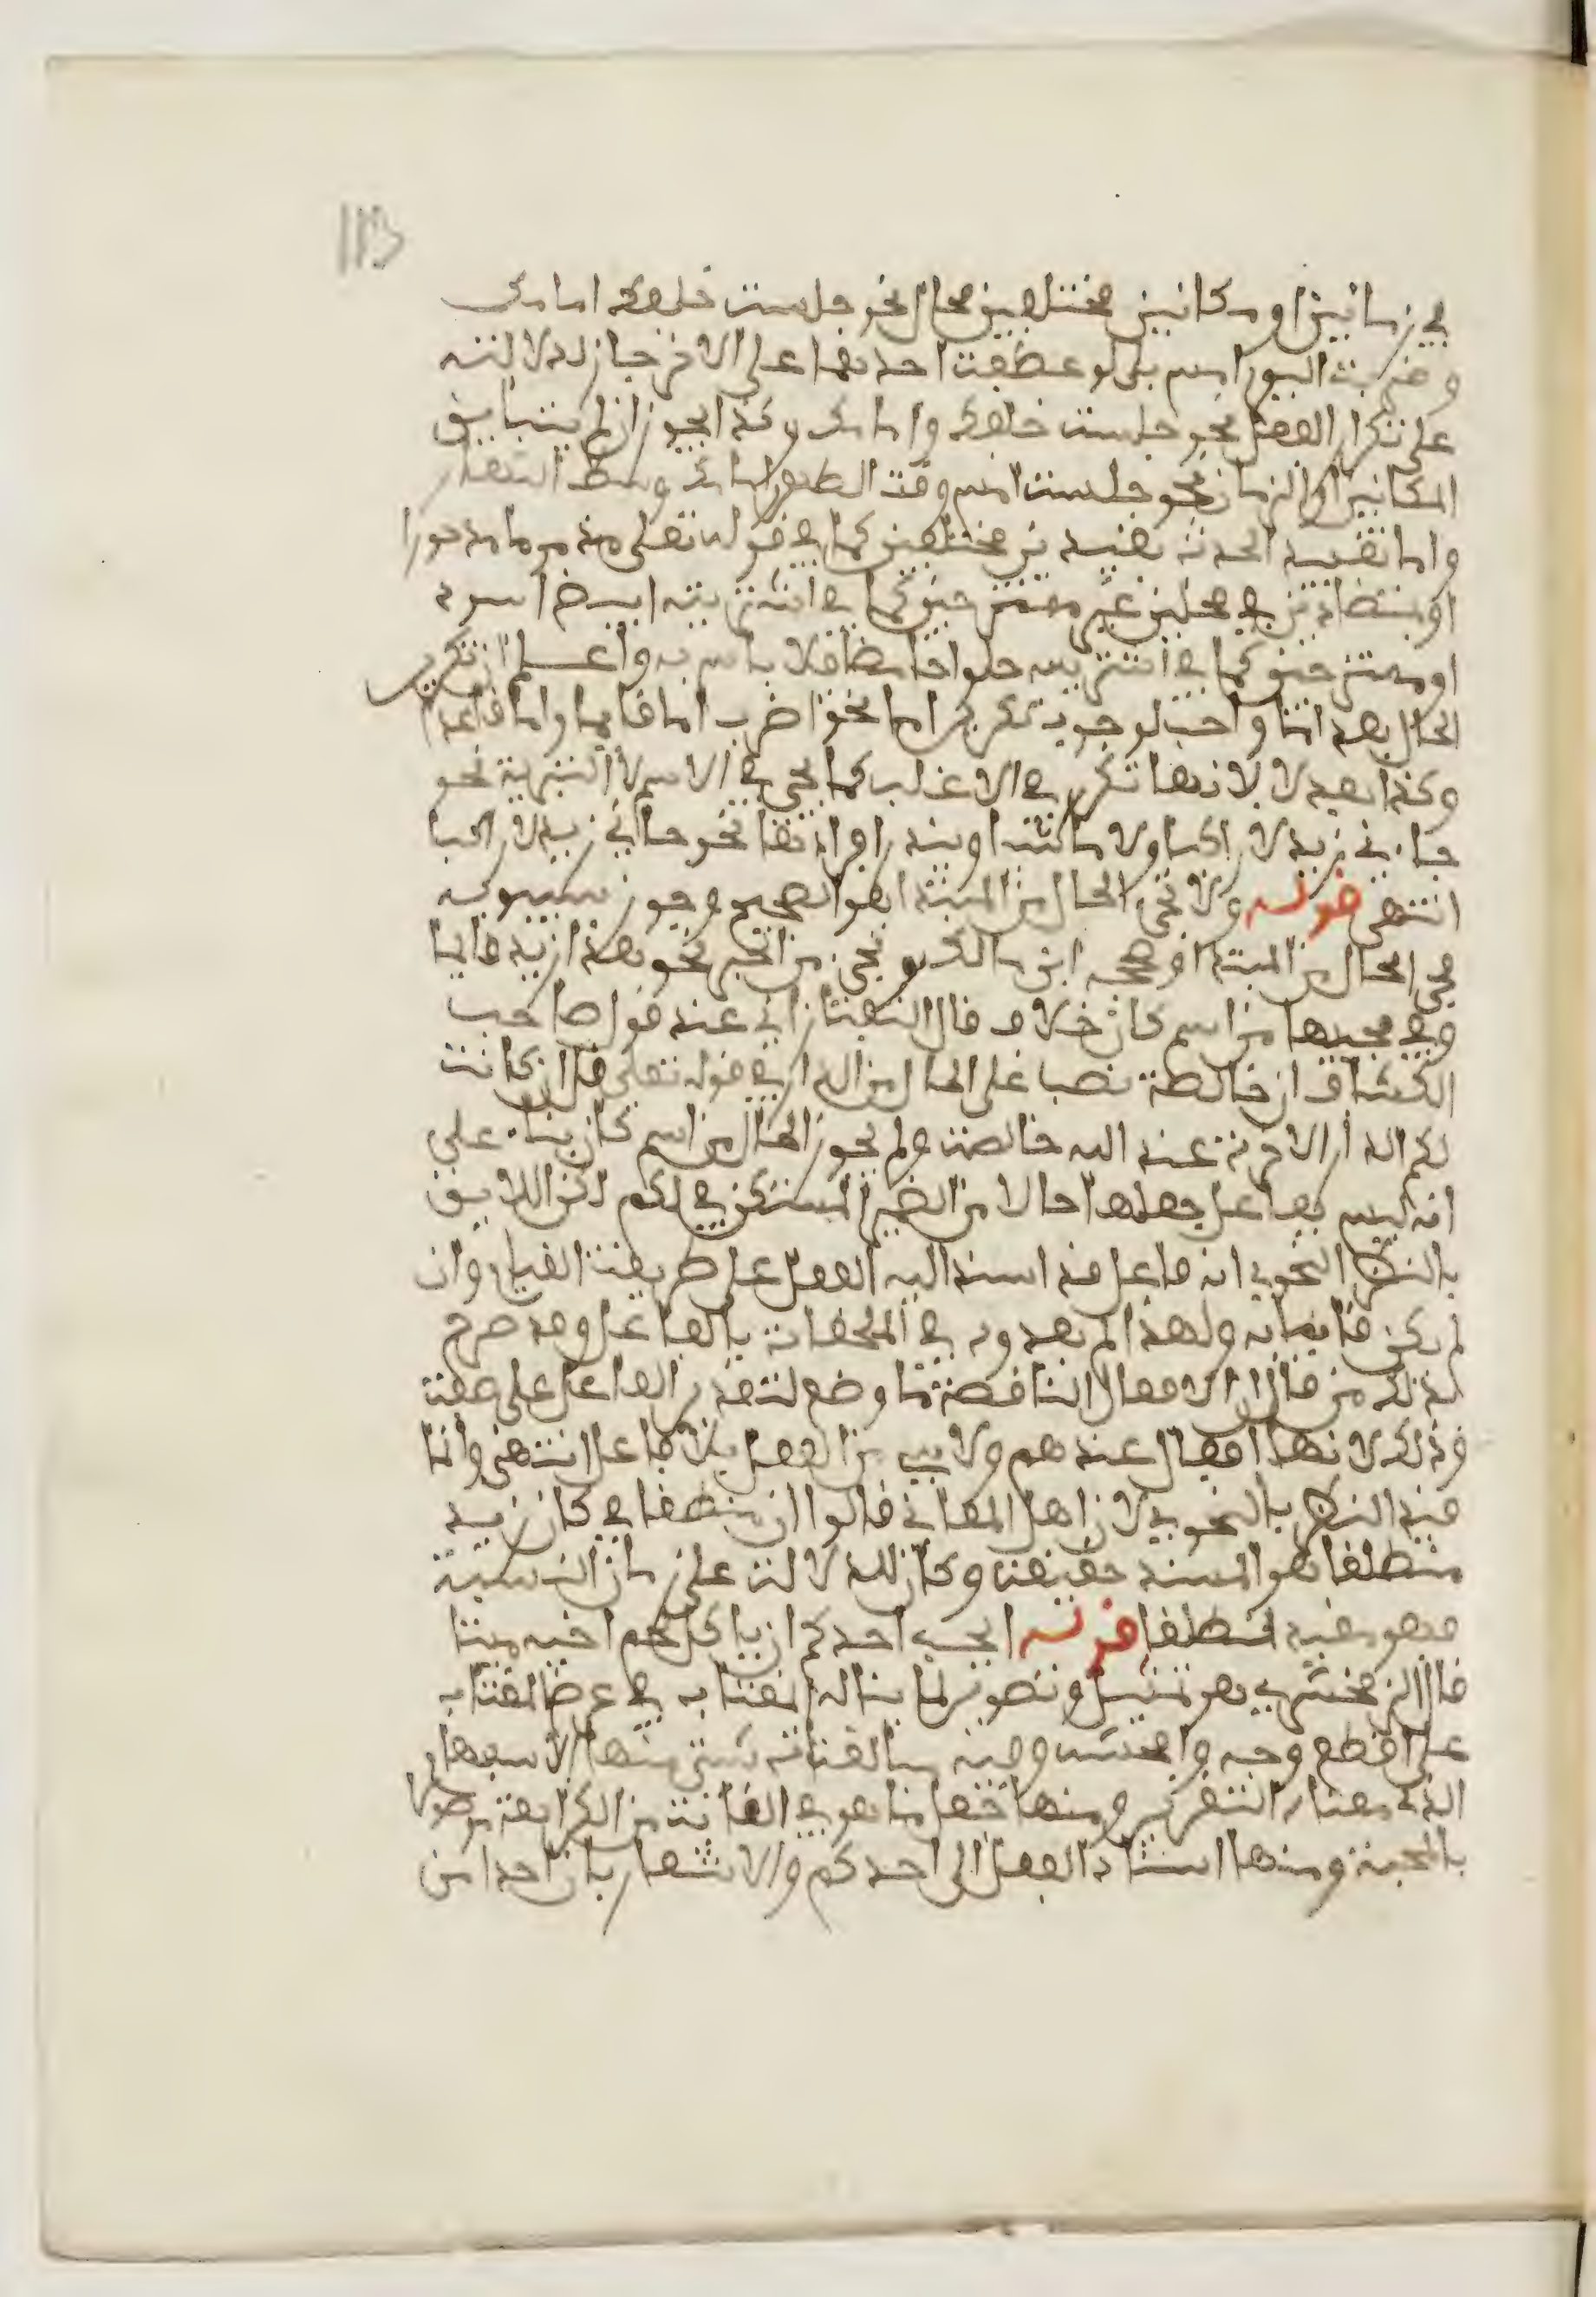 113
في زمانين او مكانين مختلفين محال نحو جلست خلفك امامك
وضربت اليوم امس بلى لو عطفت احدهما على الاخر جاز لدلالته
على تكرار الفعل نحو جلست خلفك وامامك وكذا يجوز ان لم يتباين
المكانين او الزمان نحو جلست امس وقت الظهر امامك وسط الدار
واما تقييد الحدث بقيدين مختلفين كما في قوله تعلى مذموما مدحورا
او متضادين في محلين غير ممتزجين كما في اشتريته ابيض اسود
او ممتزجين كما في اشتريته حلوا حامضا فلا باس به واعلم ان تكرير
الحال بعد اما واجب لوجوب تكرير اما نحو اضرب اما قايما واما قاعدا
وكذا بعد لا لانها تكرر في الاغلب كما يجي في الاسم لا التبرية نحو
جاءني زيد لا راكبا ولا ماشيا ويندر افرادها نحو جاني زيد لا راكبا
انتهى قوله ولا تجي الحال من المبتدا هو الصحيح وجوز سيبويه
مجي الحال من المبتدا وصححه ابن مالك وتجي من الخبر نحو هذا زيد قايما
وفي مجيها من اسم كان خلاف قال التفتازاني عند قول صاحب
الكشاف ان خالصة نصبا على الحال من الدار في قوله تعلى قل ان كانت
لكم الدار الاخرة عند الله خالصة ولم يجوز الحال من اسم كان بناء على
انه ليس بفاعل جعلها حالا من الضمير المستكن في لكم لكن اللايق
بالنظر النحوي انه فاعل قد اسند اليه الفعل على طريقة القيام وان
لم يكن قايما به ولهذا لم يعدوه في الملحقات بالفاعل وقد صرح
لذلك من قال ان الافعال الناقصة ما وضع لتقدير الفاعل على صفة
وذلك لانها افعال عندهم ولا بد من الفعل بلا فاعل انتهى وانما
قيد النظر بالنحوي لان اهل المعاني قالوا ان منطلقا في كان زيد
منطلقا هو المسند حقيقة وكان للدلالة على زمان النسبة
فهو مقيد لمنطلقا قوله ايحب احدكم ان ياكل لحم اخيه ميتا
قال الزمخشري هو تمثيل وتصوير لما يناله المغتاب في عرض المغتاب
على افظع وجه وافحشه وفيه مبالغات شتى منها الاستفهام
الذي معناه التقرير ومنها جعل ما هو في الغاية من الكراهة موصولا
بالمحبة ومنها اسناد الفعل الى احدكم والاشعار بان احدا من